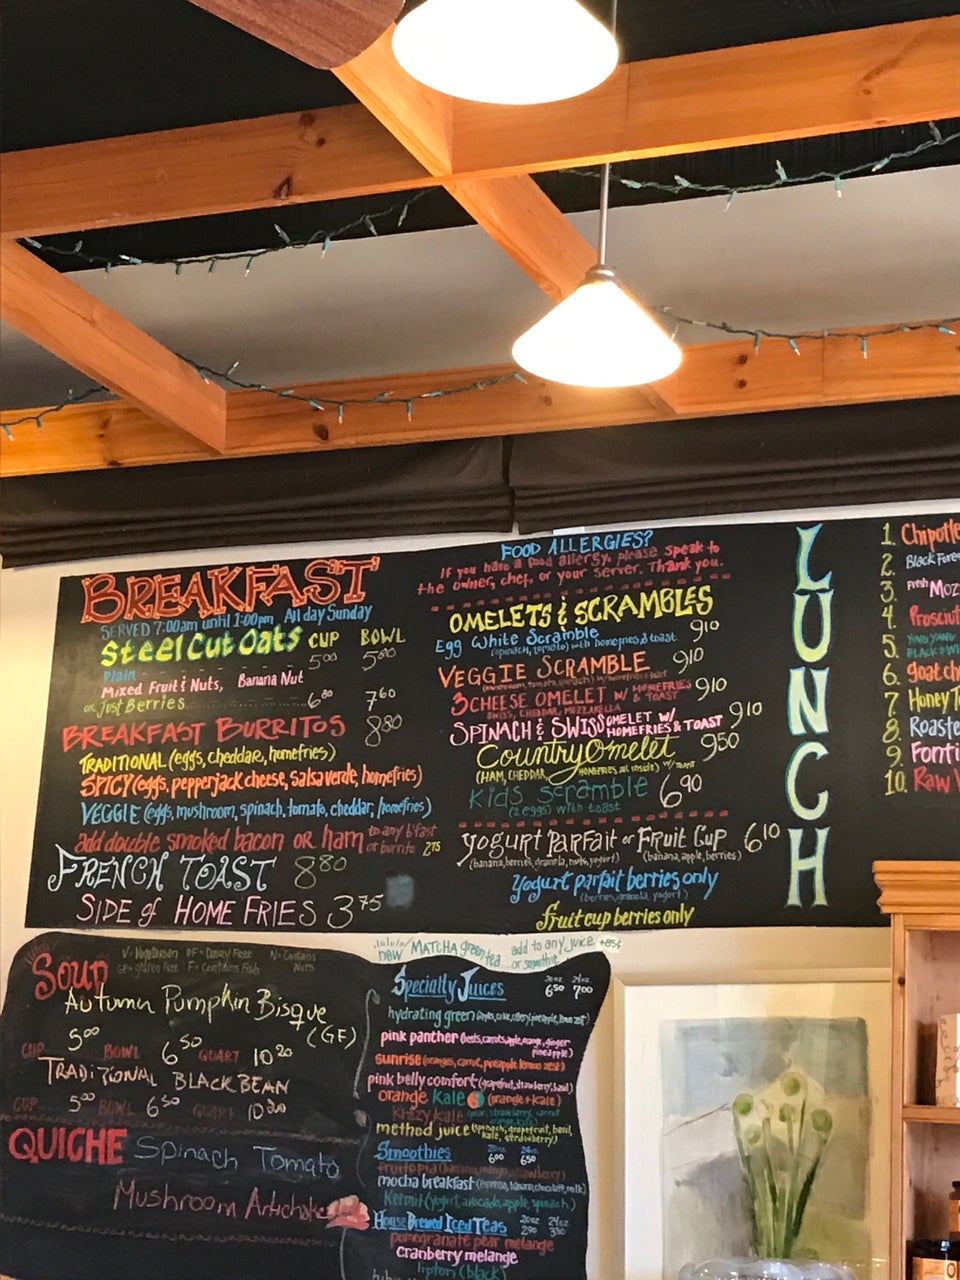 BREAKFAST
SERVED 7:00am until 1:00pm All day Sunday
Steel Cut Oats CUP BOWL
Plain 5⁰⁰
Mixed Fruit & Nuts, Banana Nut
or Just Berries 7⁶⁰
BREAKFAST BURRITOS 8⁸⁰
TRADITIONAL (eggs, cheddar, homefries)
SPICY (eggs, pepperjack cheese, salsa verde, homefries)
VEGGIE (eggs, mushroom, spinach, tomato, cheddar, homefries)
add double smoked bacon OR ham to any b'fast
or burrito 2⁷⁵
FRENCH TOAST 8⁸⁰
SIDE of HOME FRIES 3⁷⁵
FOOD ALLERGIES?
If you have a food allergy, please speak to
the owner, chef, or your server. Thank you.
OMELETS & SCRAMBLES
Egg White Scramble 9¹⁰
(spinach, tomato) with homefries & toast
VEGGIE SCRAMBLE 9¹⁰
3 CHEESE OMELET W/ HOMEFRIES & TOAST 9¹⁰
SWISS, CHEDDAR, MOZZARELLA
SPINACH & SWISS OMELET W/ HOMEFRIES & TOAST 9¹⁰
Country Omelet 9⁵⁰
(HAM, CHEDDAR, HOMEFRIES all inside) w/ toast
Kids Scramble 6⁹⁰
(2 eggs) with toast
Yogurt Parfait or Fruit Cup 6¹⁰
(banana, berries, granola, nuts, yogurt) (banana, apple, berries)
Yogurt parfait berries only
(berries, granola, yogurt)
fruit cup berries only
LUNCH
1. Chipotle
2. Black Fore
3. Fresh Moz
4. Prosciut
5.
6. goat ch
7. Honey T
8. Roaste
9. Fonti
10. Raw V
V=Vegetarian DF=Dairy Free N=Contains Nuts
GF=gluten Free F=Contains Fish
Soup
Autumn Pumpkin Bisque
(GF)
CUP 5⁰⁰ BOWL 6⁵⁰ QUART 10²⁰
TRADITIONAL BLACK BEAN
CUP 5⁰⁰ BOWL 6⁵⁰ QUART 10²⁰
QUICHE Spinach Tomato
Mushroom Artichoke
new MATCHA green tea add to any juice +85¢
or smoothie
Specialty Juices 20oz. 6⁵⁰ 24oz. 7⁰⁰
hydrating green
pink panther (beets, carrots, apple, orange, ginger
pineapple)
sunrise (oranges, carrot, pineapple lemon zest)
pink belly comfort (grapefruit, strawberry, basil)
orange Kale (orange + kale)
Krazy kale
method juice (spinach, grapefruit, basil,
kale, strawberry)
Smoothies 20oz. 6⁰⁰ 24oz. 6⁵⁰
fruitopia (banana, mango, strawberry)
mocha breakfast (espresso, banana, chocolate, milk)
Kermit (yogurt, avocado, apple, spinach)
House Brewed Iced Teas 20oz 24oz
pomegranate pear melange
cranberry melange
lipton (black)